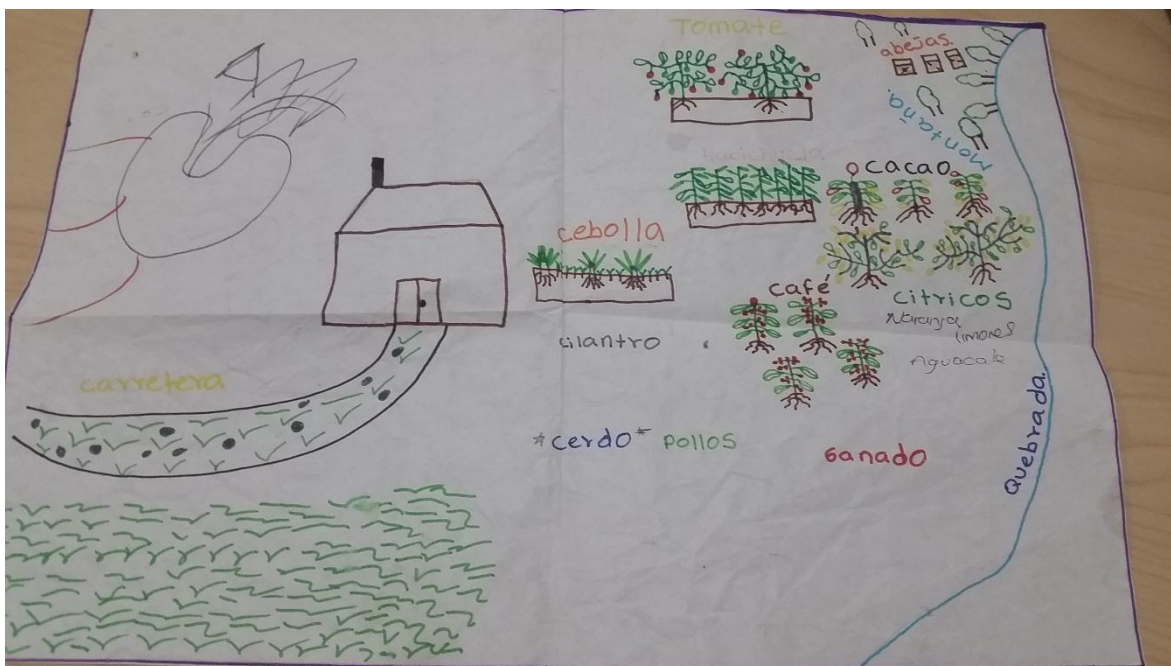 Tomate
abejas.
Montaña.
cacao
cebolla
café
citricos
Naranja
limones
Aguacate
cilantro
carretera
*cerdo* Pollos
Ganado
Quebrada.